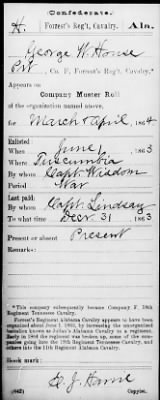 Confederate.
H. Forrest's Reg't, Cavalry. Ala.
George W. House
Pvt, Co. F, Forrest's Reg't, Cavalry.*
Appears on
Company Muster Roll
of the organization named above,
for March & April, 1864
Enlisted
When June, 1863
Where Tuscumbia
By whom Capt. Wisdom
Period War
Last paid:
By whom Capt. Lindsay
To what time Decr. 31 1863
Present or absent Present
Remarks:
*This company subsequently became Company F, 18th
Regiment Tennessee Cavalry.
Forrest's Regiment Alabama Cavalry appears to have
been organized about June 1, 1863, by increasing the
organization known as Julian's Alabama Cavalry to a regiment.
Early in 1864 the regiment was broken up, some of the companies
going into the 18th Regiment Tennessee Cavalry, and
others into the 11th Regiment Alabama Cavalry.
Book mark:
(642)
Copyist.